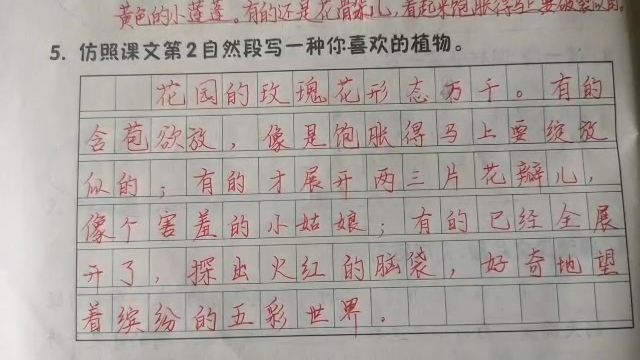 黄色的小莲蓬。有的还是花骨朵儿,看起来饱胀得马上要破裂似的。
5. 仿照课文第2自然段写一种你喜欢的植物。
花园的玫瑰花形态万千。有的
含苞欲放,像是饱胀得马上要绽放
似的;有的才展开两三片花瓣儿,
像个害羞的小姑娘;有的已经全展
开了,探出火红的脑袋,好奇地望
着缤纷的五彩世界。